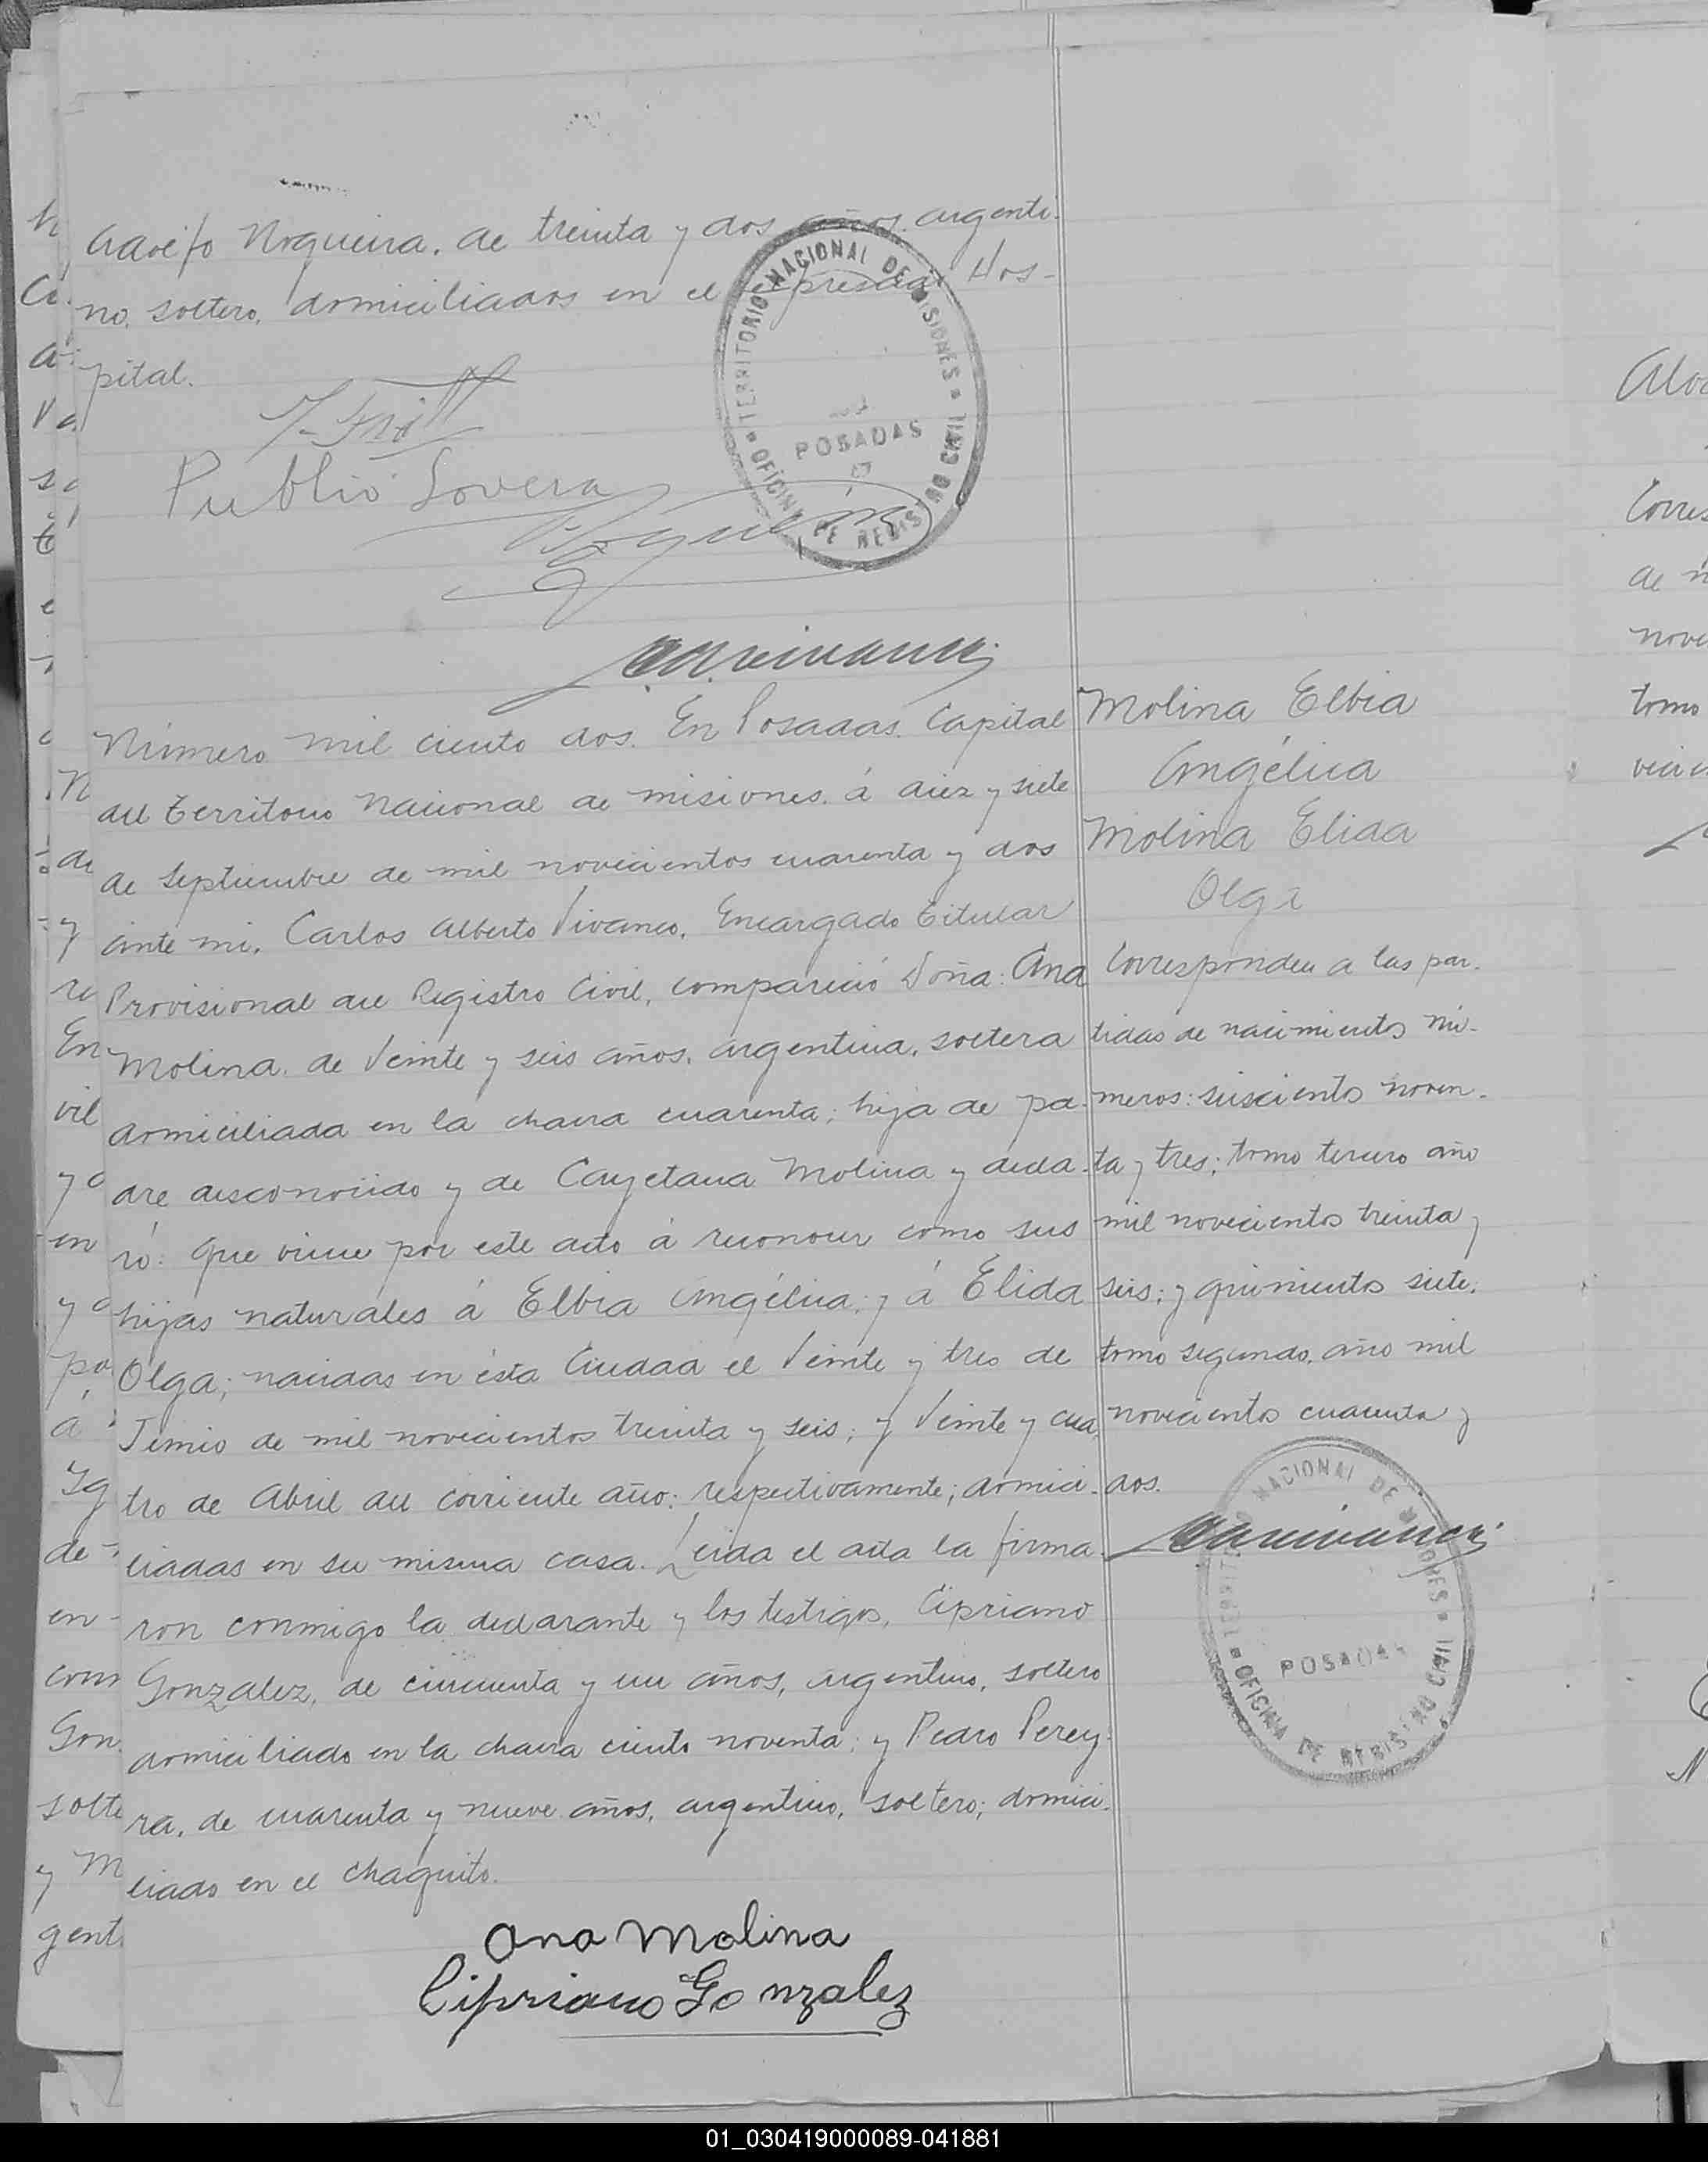 Adolfo Nogueira, de treinta y dos años, argenti-
no, soltero, domiciliados en el expresado Hos-
pital.
Publio Lovera
TERRITORIO NACIONAL DE MISIONES
POSADAS
OFICINA DE REGISTRO CIVIL
Número mil ciento dos. En Posadas, Capital
del Territorio Nacional de Misiones, á diez y siete
de Septiembre de mil novecientos cuarenta y dos
ante mi, Carlos Alberto Vivanco, Encargado Titular
Provisional del Registro Civil, compareció Doña: Ana
Molina, de Veinte y seis años, argentina, soltera
domiciliada en la chacra cuarenta; hija de pa-
dre desconocido y de Cayetana Molina y decla-
ró: Que viene por este acto á reconocer como sus
hijas naturales á Elbia Angélica; y á Elida
Olga; nacidas en ésta Ciudad el Veinte y tres de
Junio de mil novecientos treinta y seis; y Veinte y cua-
tro de Abril del corriente año: respectivamente; domici-
liadas en su misma casa. Leida el acta la firma-
ron conmigo la declarante y los testigos, Cipriano
Gonzalez, de cincuenta y un años, argentino, soltero
domiciliado en la chacra ciento noventa; y Pedro Perey-
ra, de cuarenta y nueve años, argentino, soltero; domici-
liado en el Chaquito.
Ana Molina
Cipriano Gonzalez
Molina Elbia
Angélica
Molina Elida
Olga
Corresponden a las par-
tidas de nacimientos nú-
meros: seiscientos noven-
ta y tres; tomo tercero año
mil novecientos treinta y
seis; y quinientos siete;
tomo segundo, año mil
novecientos cuarenta y
dos.
TERRITORIO NACIONAL DE MISIONES
POSADAS
OFICINA DE REGISTRO CIVIL
01_030419000089-041881